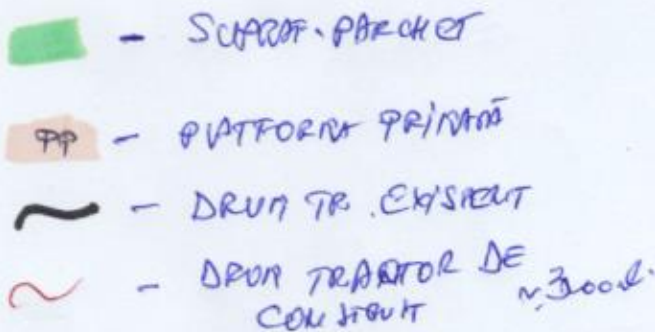 - SUPRAF. PARCHET
PP - PLATFORMA PRIMARĂ
- DRUM TR. EXISTENT
- DRUM TRACTOR DE
CONSTRUIT